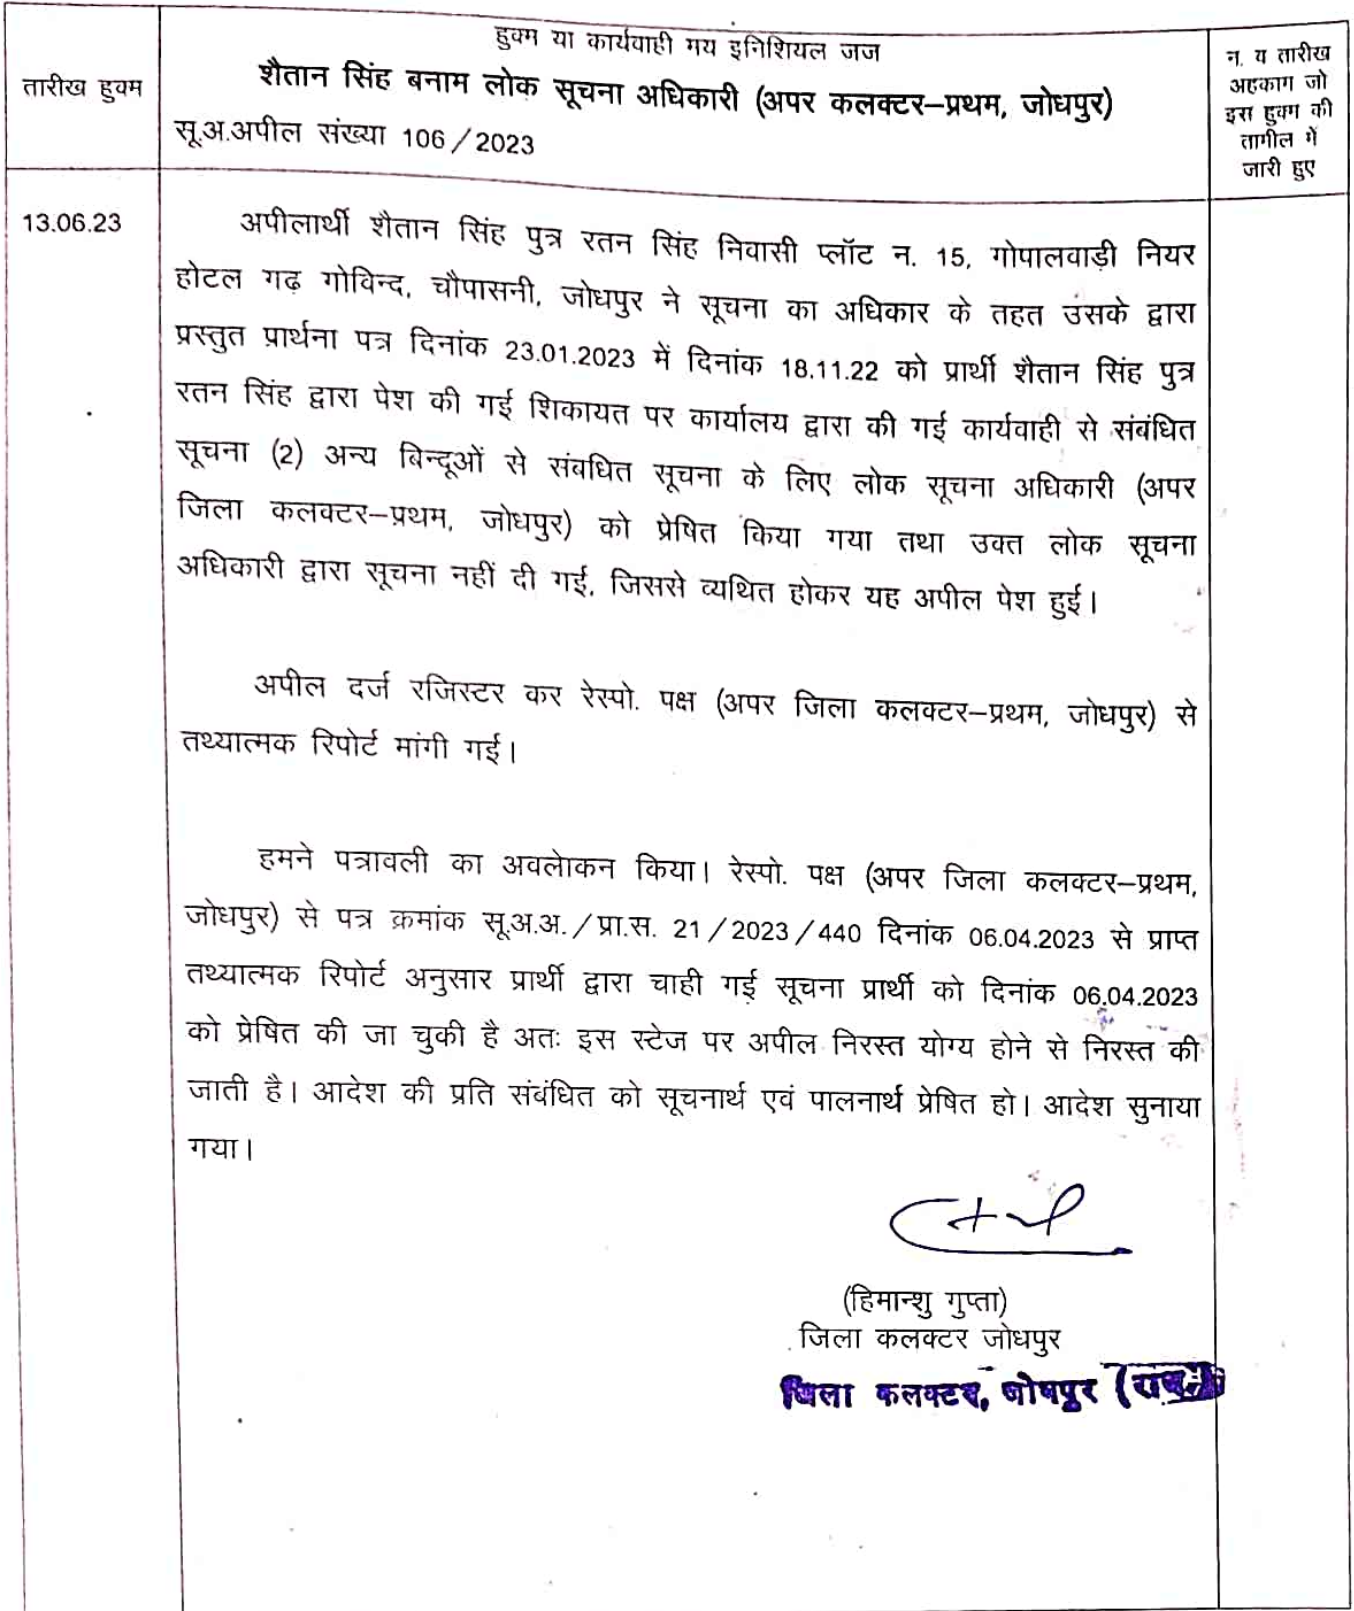 हुक्म या कार्यवाही मय इनिशियल जज
तारीख हुक्म
शैतान सिंह बनाम लोक सूचना अधिकारी (अपर कलक्टर–प्रथम, जोधपुर)
सू.अ.अपील संख्या 106/2023
न. य तारीख
अहकाग जो
इस हुक्म की
तागील गें
जारी हुए
13.06.23
अपीलार्थी शैतान सिंह पुत्र रतन सिंह निवासी प्लॉट न. 15, गोपालवाड़ी नियर
होटल गढ़ गोविन्द, चौपासनी, जोधपुर ने सूचना का अधिकार के तहत उसके द्वारा
प्रस्तुत प्रार्थना पत्र दिनांक 23.01.2023 में दिनांक 18.11.22 को प्रार्थी शैतान सिंह पुत्र
रतन सिंह द्वारा पेश की गई शिकायत पर कार्यालय द्वारा की गई कार्यवाही से संबंधित
सूचना (2) अन्य बिन्दूओं से संबधित सूचना के लिए लोक सूचना अधिकारी (अपर
जिला कलक्टर–प्रथम, जोधपुर) को प्रेषित किया गया तथा उक्त लोक सूचना
अधिकारी द्वारा सूचना नहीं दी गई, जिससे व्यथित होकर यह अपील पेश हुई।
अपील दर्ज रजिस्टर कर रेस्पो. पक्ष (अपर जिला कलक्टर–प्रथम, जोधपुर) से
तथ्यात्मक रिपोर्ट मांगी गई।
हमने पत्रावली का अवलेाकन किया। रेस्पो. पक्ष (अपर जिला कलक्टर–प्रथम,
जोधपुर) से पत्र क्रमांक सू.अ.अ./प्रा.स. 21/2023/440 दिनांक 06.04.2023 से प्राप्त
तथ्यात्मक रिपोर्ट अनुसार प्रार्थी द्वारा चाही गई सूचना प्रार्थी को दिनांक 06.04.2023
को प्रेषित की जा चुकी है अतः इस स्टेज पर अपील निरस्त योग्य होने से निरस्त की
जाती है। आदेश की प्रति संबंधित को सूचनार्थ एवं पालनार्थ प्रेषित हो। आदेश सुनाया
गया।
(हिमान्शु गुप्ता)
जिला कलक्टर जोधपुर
जिला कलक्टर, जोधपुर (राज.)